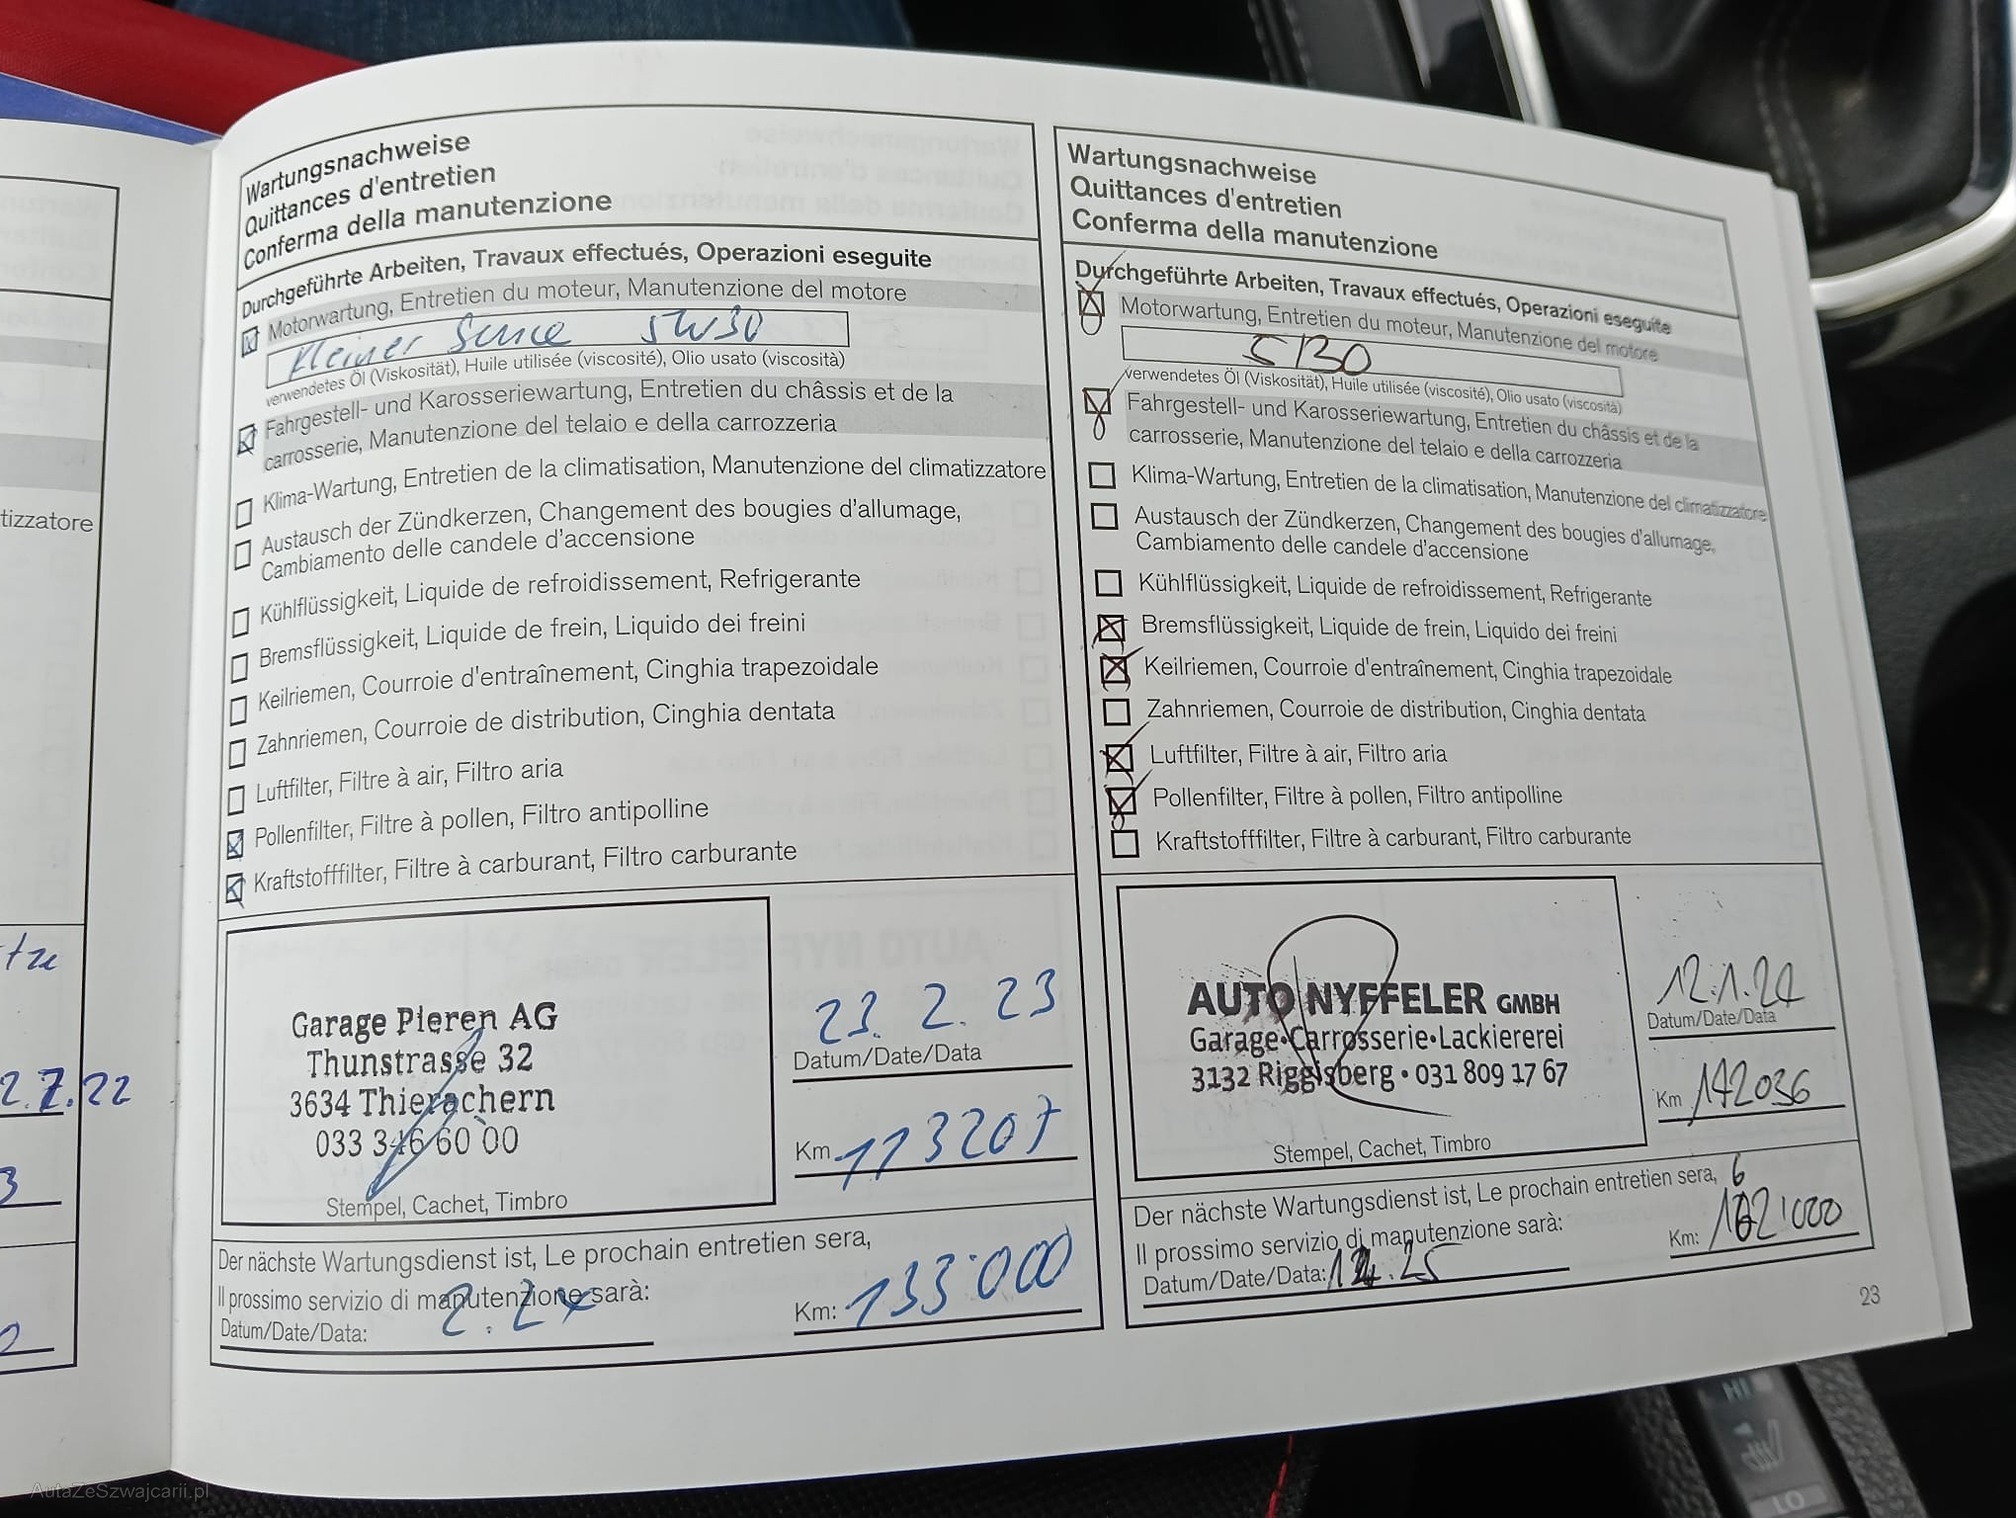 tizzatore
2.7.22
3
Wartungsnachweise
Quittances d'entretien
Conferma della manutenzione
Durchgeführte Arbeiten, Travaux effectués, Operazioni eseguite
Motorwartung, Entretien du moteur, Manutenzione del motore
Kleiner Service 5W30
verwendetes Öl (Viskosität), Huile utilisée (viscosité), Olio usato (viscosità)
Fahrgestell- und Karosseriewartung, Entretien du châssis et de la
carrosserie, Manutenzione del telaio e della carrozzeria
Klima-Wartung, Entretien de la climatisation, Manutenzione del climatizzatore
Austausch der Zündkerzen, Changement des bougies d'allumage,
Cambiamento delle candele d'accensione
Kühlflüssigkeit, Liquide de refroidissement, Refrigerante
Bremsflüssigkeit, Liquide de frein, Liquido dei freini
Keilriemen, Courroie d'entraînement, Cinghia trapezoidale
Zahnriemen, Courroie de distribution, Cinghia dentata
Luftfilter, Filtre à air, Filtro aria
Pollenfilter, Filtre à pollen, Filtro antipolline
Kraftstofffilter, Filtre à carburant, Filtro carburante
Garage Pieren AG
Thunstrasse 32
3634 Thierachern
033 346 60 00
Stempel, Cachet, Timbro
23. 2. 23
Datum/Date/Data
Km 113207
Der nächste Wartungsdienst ist, Le prochain entretien sera,
Il prossimo servizio di manutenzione sarà:
Datum/Date/Data: 2.24
Km: 133'000
Wartungsnachweise
Quittances d'entretien
Conferma della manutenzione
Durchgeführte Arbeiten, Travaux effectués, Operazioni eseguite
Motorwartung, Entretien du moteur, Manutenzione del motore
5/30
verwendetes Öl (Viskosität), Huile utilisée (viscosité), Olio usato (viscosità)
Fahrgestell- und Karosseriewartung, Entretien du châssis et de la
carrosserie, Manutenzione del telaio e della carrozzeria
Klima-Wartung, Entretien de la climatisation, Manutenzione del climatizzatore
Austausch der Zündkerzen, Changement des bougies d'allumage,
Cambiamento delle candele d'accensione
Kühlflüssigkeit, Liquide de refroidissement, Refrigerante
Bremsflüssigkeit, Liquide de frein, Liquido dei freini
Keilriemen, Courroie d'entraînement, Cinghia trapezoidale
Zahnriemen, Courroie de distribution, Cinghia dentata
Luftfilter, Filtre à air, Filtro aria
Pollenfilter, Filtre à pollen, Filtro antipolline
Kraftstofffilter, Filtre à carburant, Filtro carburante
AUTO NYFFELER GMBH
Garage•Carrosserie•Lackiererei
3132 Riggisberg • 031 809 17 67
Stempel, Cachet, Timbro
12.1.24
Datum/Date/Data
Km 142036
Der nächste Wartungsdienst ist, Le prochain entretien sera,
Il prossimo servizio di manutenzione sarà:
Datum/Date/Data:
Km:
23
HI
LO
AutaZeSzwajcarii.pl